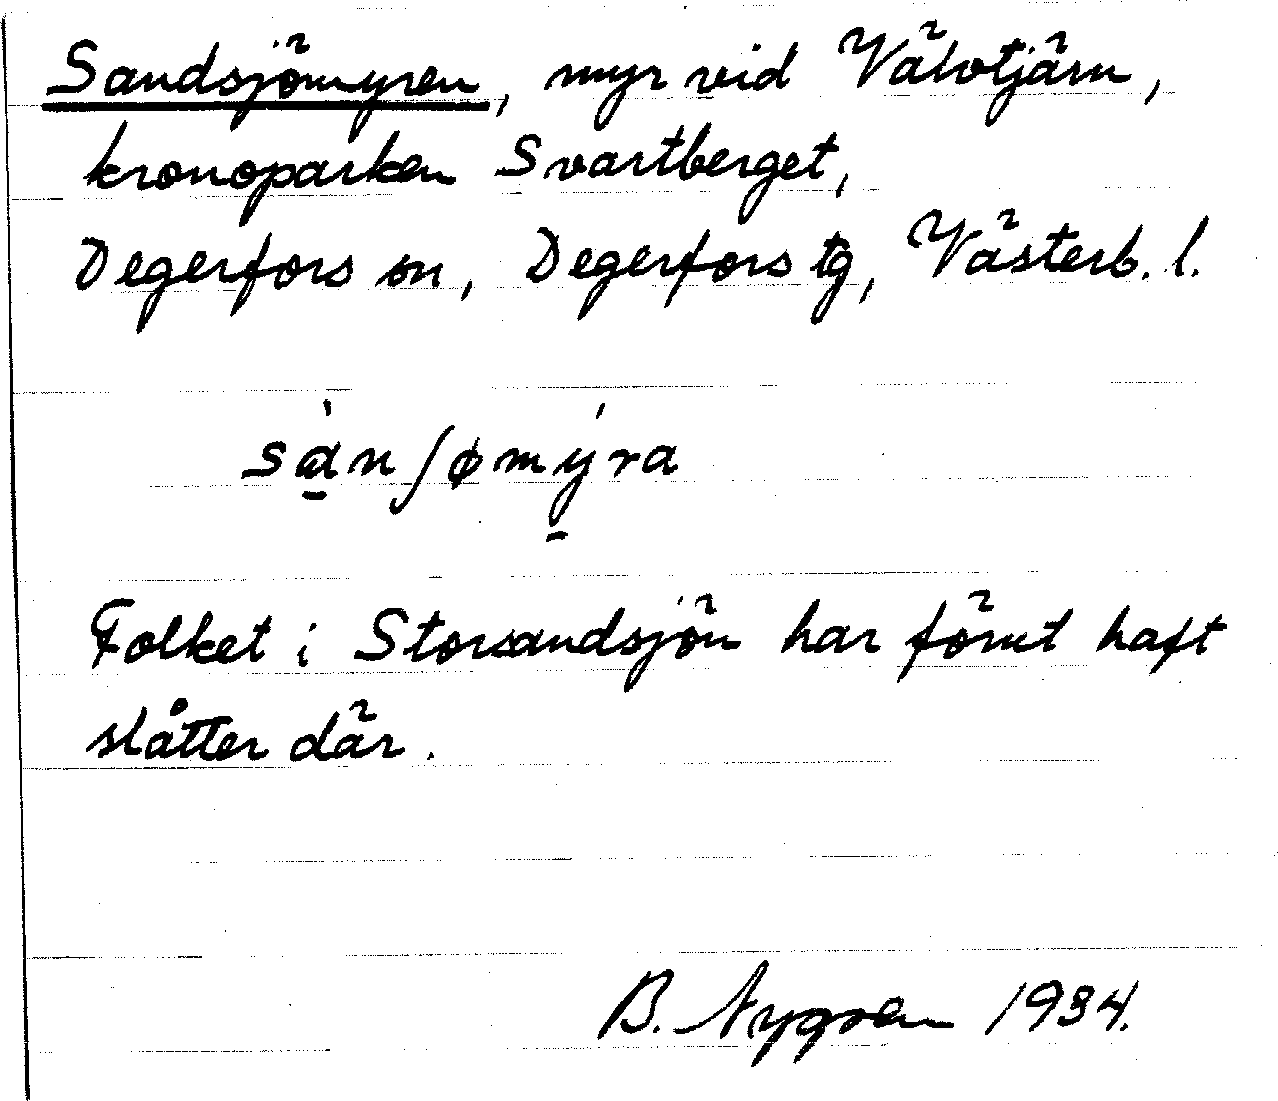 Sandsjömyren, myr vid Välvtjärn,
kronoparken Svartberget,
Degerfors sn, Degerfors tg, Västerb. l.
sa̱̍nʃømý̱ra
Folket i Storsandsjön har förut haft
slåtter där.
B. Nygren 1934.